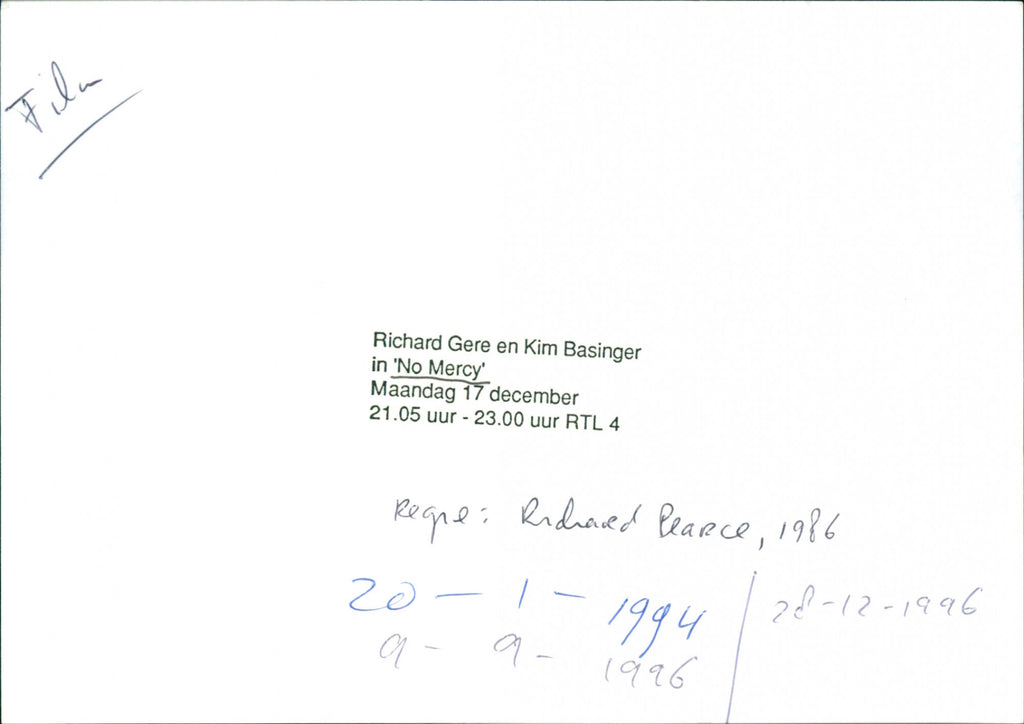 Film
Richard Gere en Kim Basinger
in 'No Mercy'
Maandag 17 december
21.05 uur - 23.00 uur RTL 4
Regie: Richard Pearce, 1986
20 - 1 - 1994
28-12-1996
9 - 9 - 1996